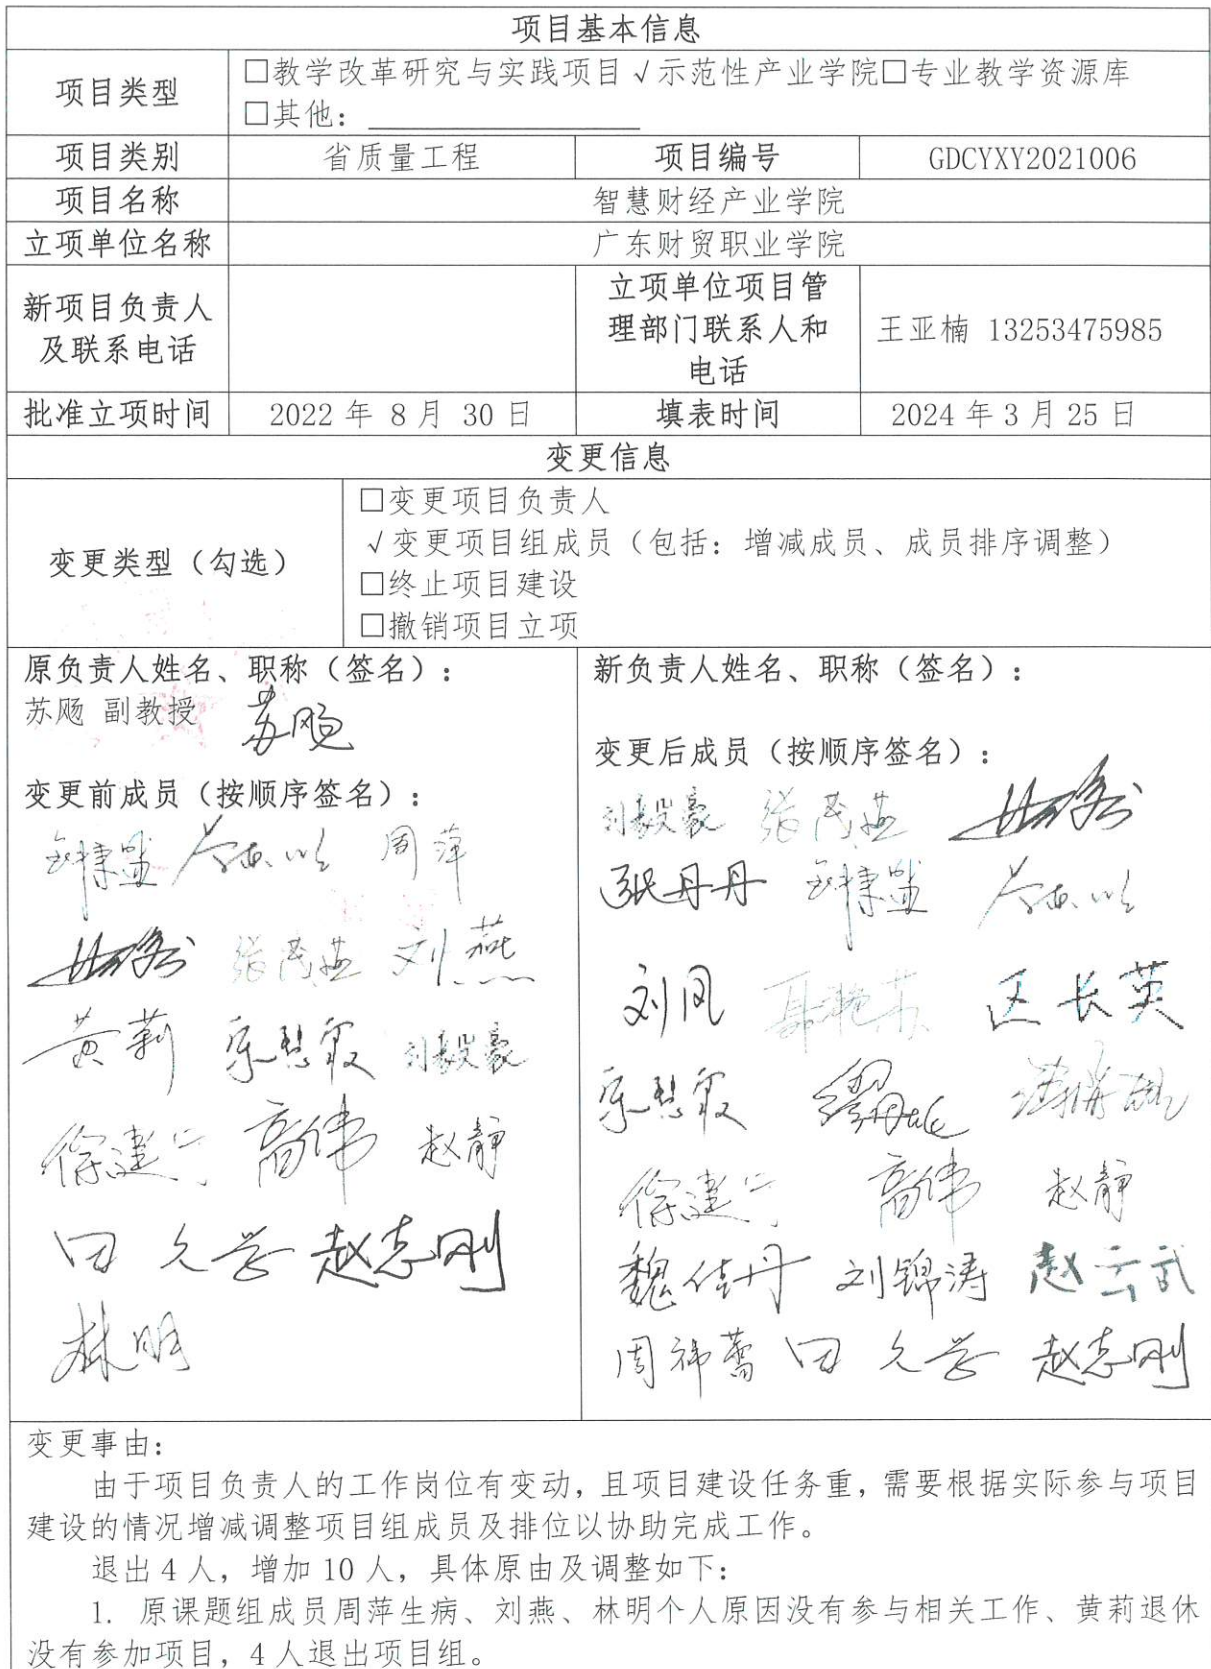 项目基本信息
项目类型
□教学改革研究与实践项目 √示范性产业学院□专业教学资源库
□其他：
项目类别 省质量工程 项目编号 GDCYXY2021006
项目名称 智慧财经产业学院
立项单位名称 广东财贸职业学院
新项目负责人
及联系电话
立项单位项目管
理部门联系人和
电话
王亚楠 13253475985
批准立项时间 2022 年 8 月 30 日 填表时间 2024 年 3 月 25 日
变更信息
变更类型（勾选）
□变更项目负责人
√变更项目组成员（包括：增减成员、成员排序调整）
□终止项目建设
□撤销项目立项
原负责人姓名、职称（签名）：
苏飏 副教授 苏飏
变更前成员（按顺序签名）：
周萍
张茂燕 刘燕
黄莉 刘毅豪
徐建宁 高伟 赵静
田久学 赵志刚
林明
新负责人姓名、职称（签名）：
变更后成员（按顺序签名）：
刘毅豪 张茂燕
张丹丹
刘凤 区长英
徐建宁 高伟 赵静
魏佳丹 刘锦涛 赵云武
周祎蕾 田久学 赵志刚
变更事由：
由于项目负责人的工作岗位有变动，且项目建设任务重，需要根据实际参与项目
建设的情况增减调整项目组成员及排位以协助完成工作。
退出 4 人，增加 10 人，具体原由及调整如下：
1. 原课题组成员周萍生病、刘燕、林明个人原因没有参与相关工作、黄莉退休
没有参加项目，4 人退出项目组。